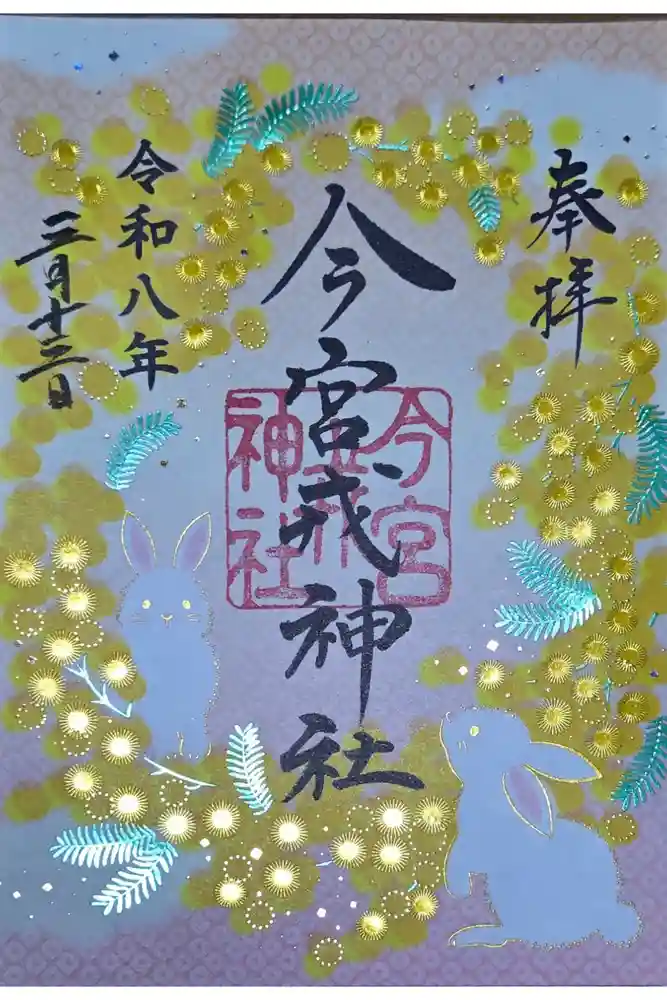 奉拝
今宮戎神社
今宮戎神社
令和八年
三月十三日